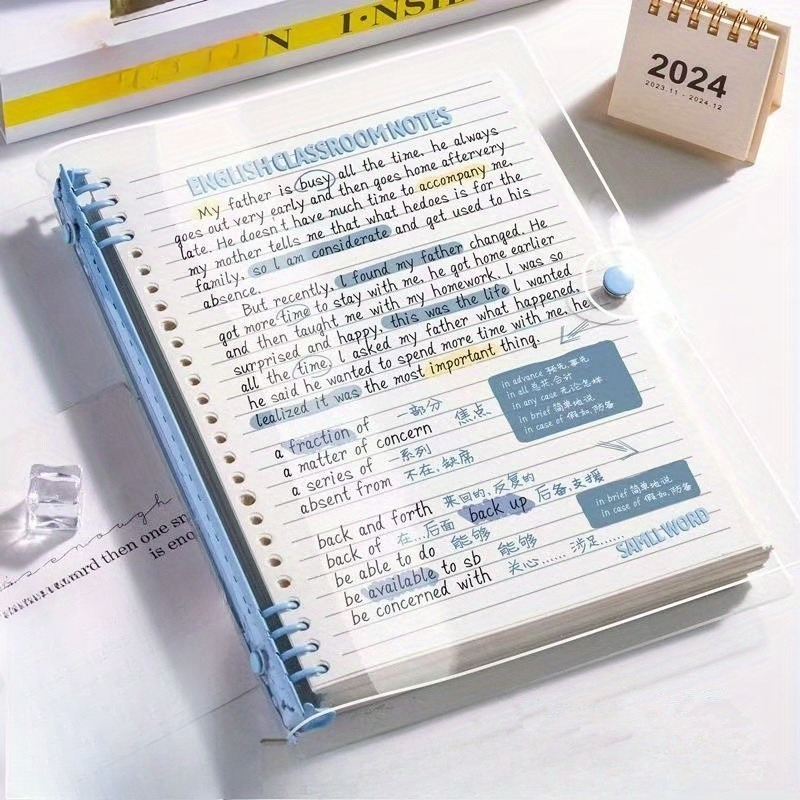 I·NSI
2024
2023.11 - 2024.12
ENGLISH CLASSROOM NOTES
My father is busy all the time. he always
goes out very early and then goes home aftervery
late. He doesn't have much time to accompany me.
my mother tells me that what hedoes is for the
family, so I am considerate and get used to his
absence.
But recently, I found my father changed. He
got more time to stay with me, he got home earlier
and then taught me with my homework. I was so
surprised and happy. this was the life I wanted
all the time. I asked my father what happened.
he said he wanted to spend more time with me, he
lealized it was the most important thing.
in advance 预先,事先
in all 总共 合计
in any case 无论怎样
in brief 简单地说
in case of 假如,防备
a fraction of 一部分
a matter of concern 焦点
a series of 一系列
absent from 不在,缺席
back and forth 来回的,反复的
back of 在...后面 back up 后备,支援
be able to do 能够
be available to sb 能够
be concerned with 关心...... 涉足......
in brief 简单地说
in case of 假如,防备
SAMLL WORD
enough
then one
is eno